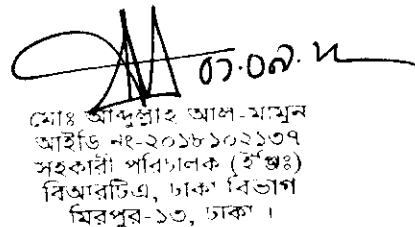 ০১.০৯.২
মোঃ আব্দুল্লাহ আল-মামুন
আইডি নং-২০১৮১০২১৩৭
সহকারী পরিচালক (ইঞ্জিঃ)
বিআরটিএ, ঢাকা বিভাগ
মিরপুর-১৩, ঢাকা ।